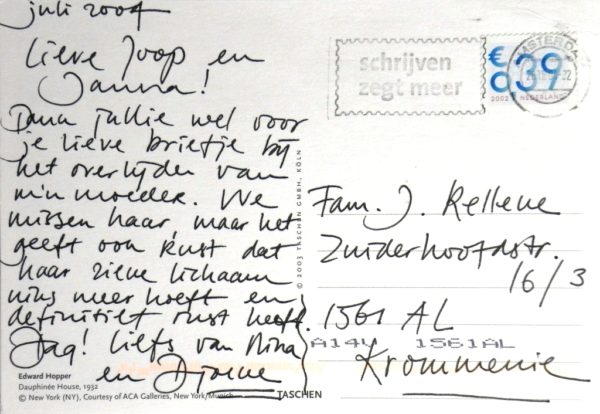 juli 2004
Lieve Joop en
Janna!
Dank jullie wel voor
je lieve briefje bij
het overlijden van
m'n moeder. We
missen haar, maar het
geeft ook rust dat
haar zieke lichaam
niks meer hoeft en
definitief rust heeft.
Dag! liefs van Nina
en Djoeke
Edward Hopper
Dauphinée House, 1932
© New York (NY), Courtesy of ACA Galleries, New York/Munich
© 2003 TASCHEN GMBH, KÖLN
TASCHEN
schrijven
zegt meer
€
039
2002 NEDERLAND
AMSTERDAM
Fam. J. Kelleve
Zuiderhoofdstr.
16/3
1561 AL
A14V 1561AL
Krommenie